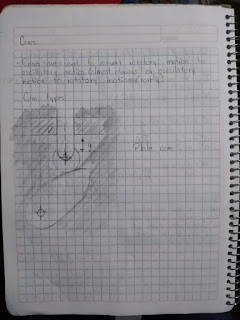 Cams:
- Cams are used to convert rotatory motion to
oscillatory motion (almost always) or oscillatory
motion to rotatory motion (rarely)
Cam Types
y
Plate cam